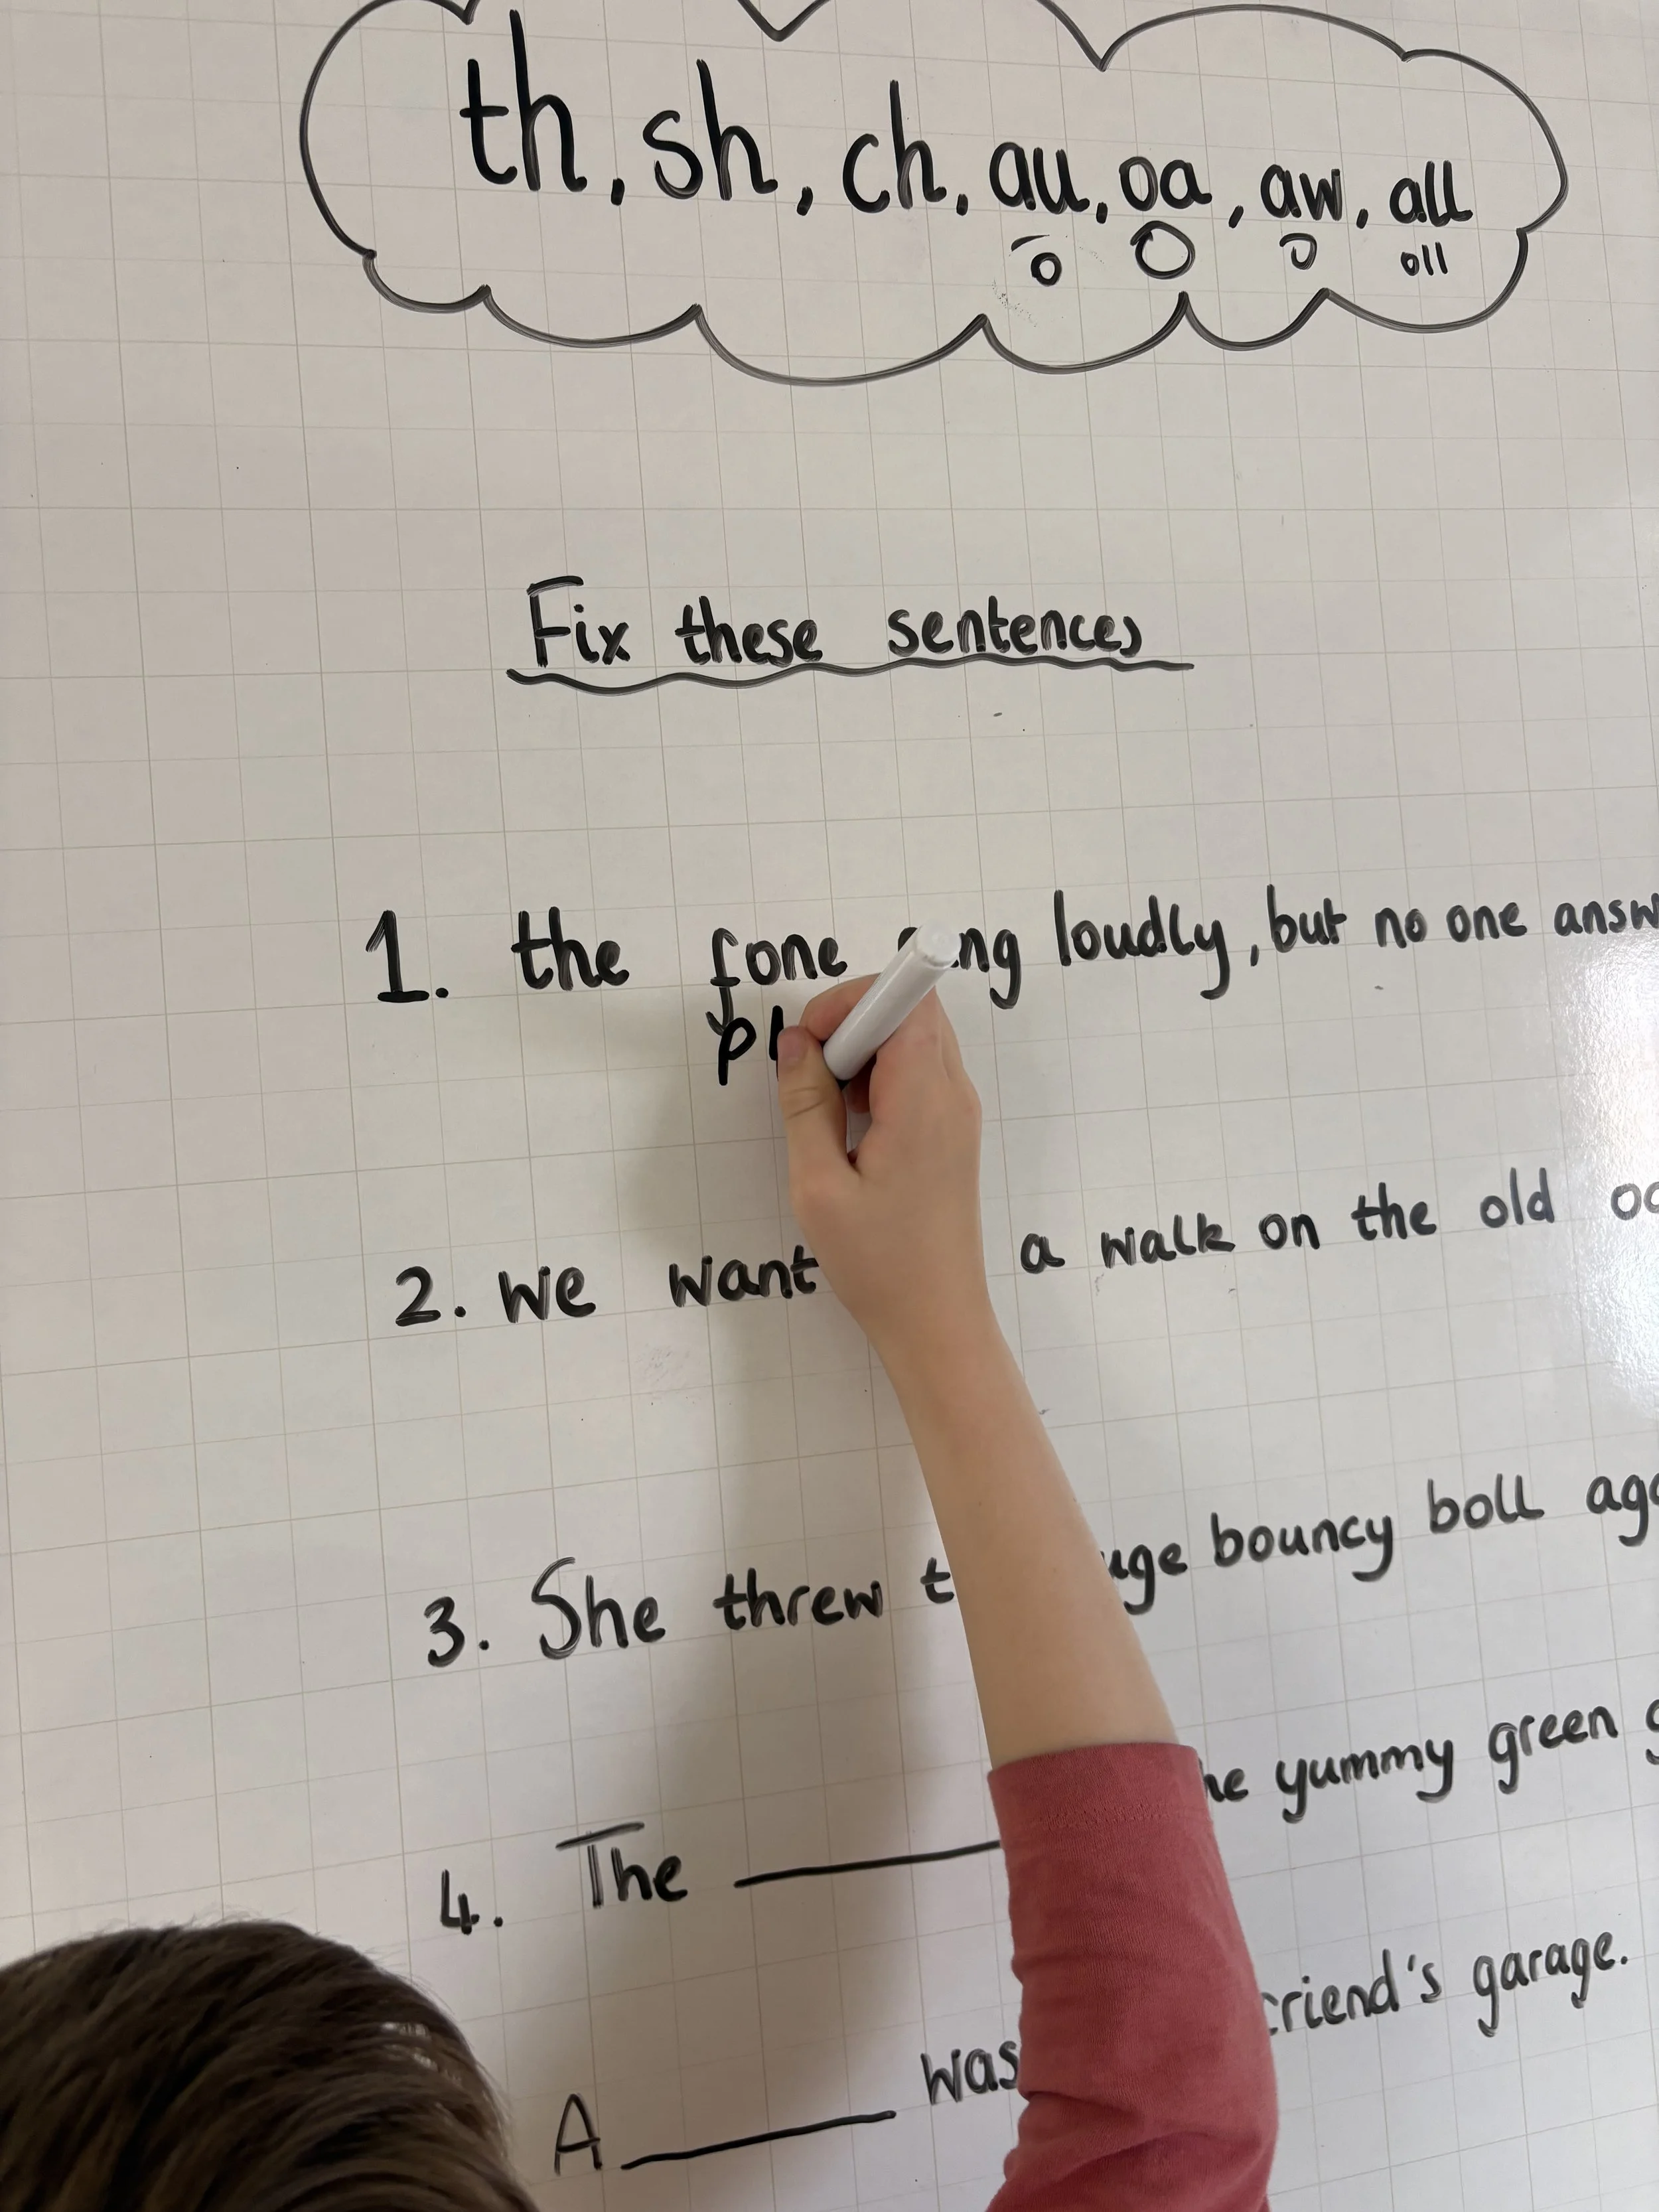 th, sh, ch, au, oa, aw, all
o O o oll
Fix these sentences
1. the fone loudly, but no one
p
2. we want a walk on the old
3. She threw bouncy boll
4. The yummy green
A was friend's garage.